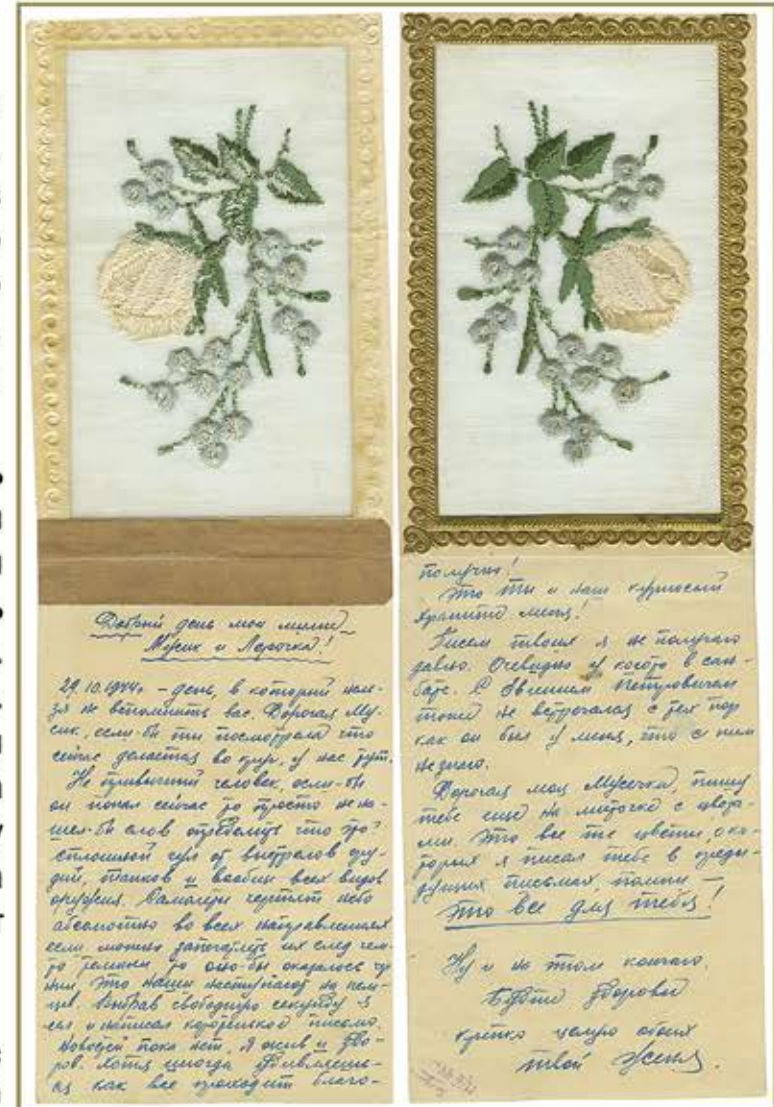 Добрый день мои милые
Мусик и Лерочка!
29.10.1944г – день, в который нель-
зя не вспомнить вас. Дорогая Му-
сик, если-бы ты посмотрела что
сейчас делается во круг, у нас тут.
Не привычный человек, если-бы
он попал сейчас то просто не на-
шел-бы слов определить что это?
Сплошной гул от выстрелов ору-
дий, танков и вообще всех видов
оружия. Самолеты чертят небо
абсолютно во всех направлениях
если можно запечатлеть их след чем-
то темным то оно-бы оказалось чер
ным. Это наши наступают на нем-
цев. Выбрав свободную секунду я
сел и написал коротенькое письмо.
Новостей пока нет, я жив и здо-
ров. Хотя иногда удивляешь-
ся как все проходит благо-
получно!
Это ты и наш курносый
храните меня!
Писем твоих я не получаю
давно. Очевидно у кого то в сан-
бате. С Евгением Петровичем
тоже не встречалась с тех пор
как он был у меня, что с ним
не знаю.
Дорогая моя Мусечка, пишу
тебе еще на листочке с цвета-
ми. Это все те цветы, о ко-
торых я писал тебе в преды-
дущих письмах, помни —
это все для тебя!
Ну и на этом кончаю.
Будте здоровы
крепко целую обоих
твой Женя.